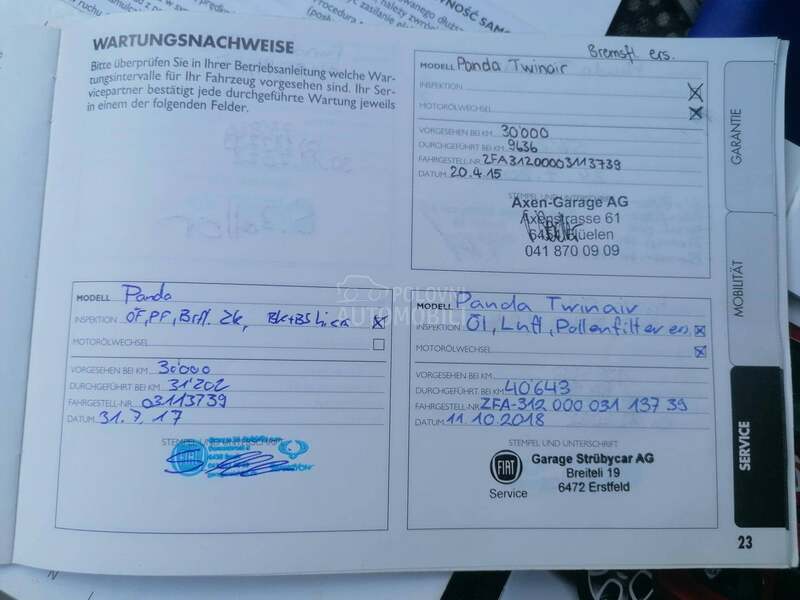 WARTUNGSNACHWEISE
Bitte überprüfen Sie in Ihrer Betriebsanleitung welche War-
tungsintervalle für Ihr Fahrzeug vorgesehen sind. Ihr Ser-
vicepartner bestätigt jede durchgeführte Wartung jeweils
in einem der folgenden Felder.
Bremsfl. ers.
MODELL Panda Twinair
INSPEKTION
MOTORÖLWECHSEL
VORGESEHEN BEI KM 30'000
DURCHGEFÜHRT BEI KM 9636
FAHRGESTELL-NR. ZFA31200003113739
DATUM 20.4.15
STEMPEL UND UNTERSCHRIFT
Axen-Garage AG
Axenstrasse 61
6454 Flüelen
041 870 09 09
MODELL Panda
INSPEKTION ÖF, PF, Brfl.
MOTORÖLWECHSEL
VORGESEHEN BEI KM 30'000
DURCHGEFÜHRT BEI KM 31'202
FAHRGESTELL-NR. 03113739
DATUM 31.7.17
STEMPEL UND UNTERSCHRIFT
MODELL Panda Twinair
INSPEKTION Öl, Luft, Pollenfilter ers
MOTORÖLWECHSEL
VORGESEHEN BEI KM
DURCHGEFÜHRT BEI KM 40'643
FAHRGESTELL-NR. ZFA-312 000 031 137 39
DATUM 11 10.2018
STEMPEL UND UNTERSCHRIFT
FIAT
Service
Garage Strübycar AG
Breiteli 19
6472 Erstfeld
GARANTIE
MOBILITÄT
SERVICE
23
POLOVNI
AUTOMOBILI